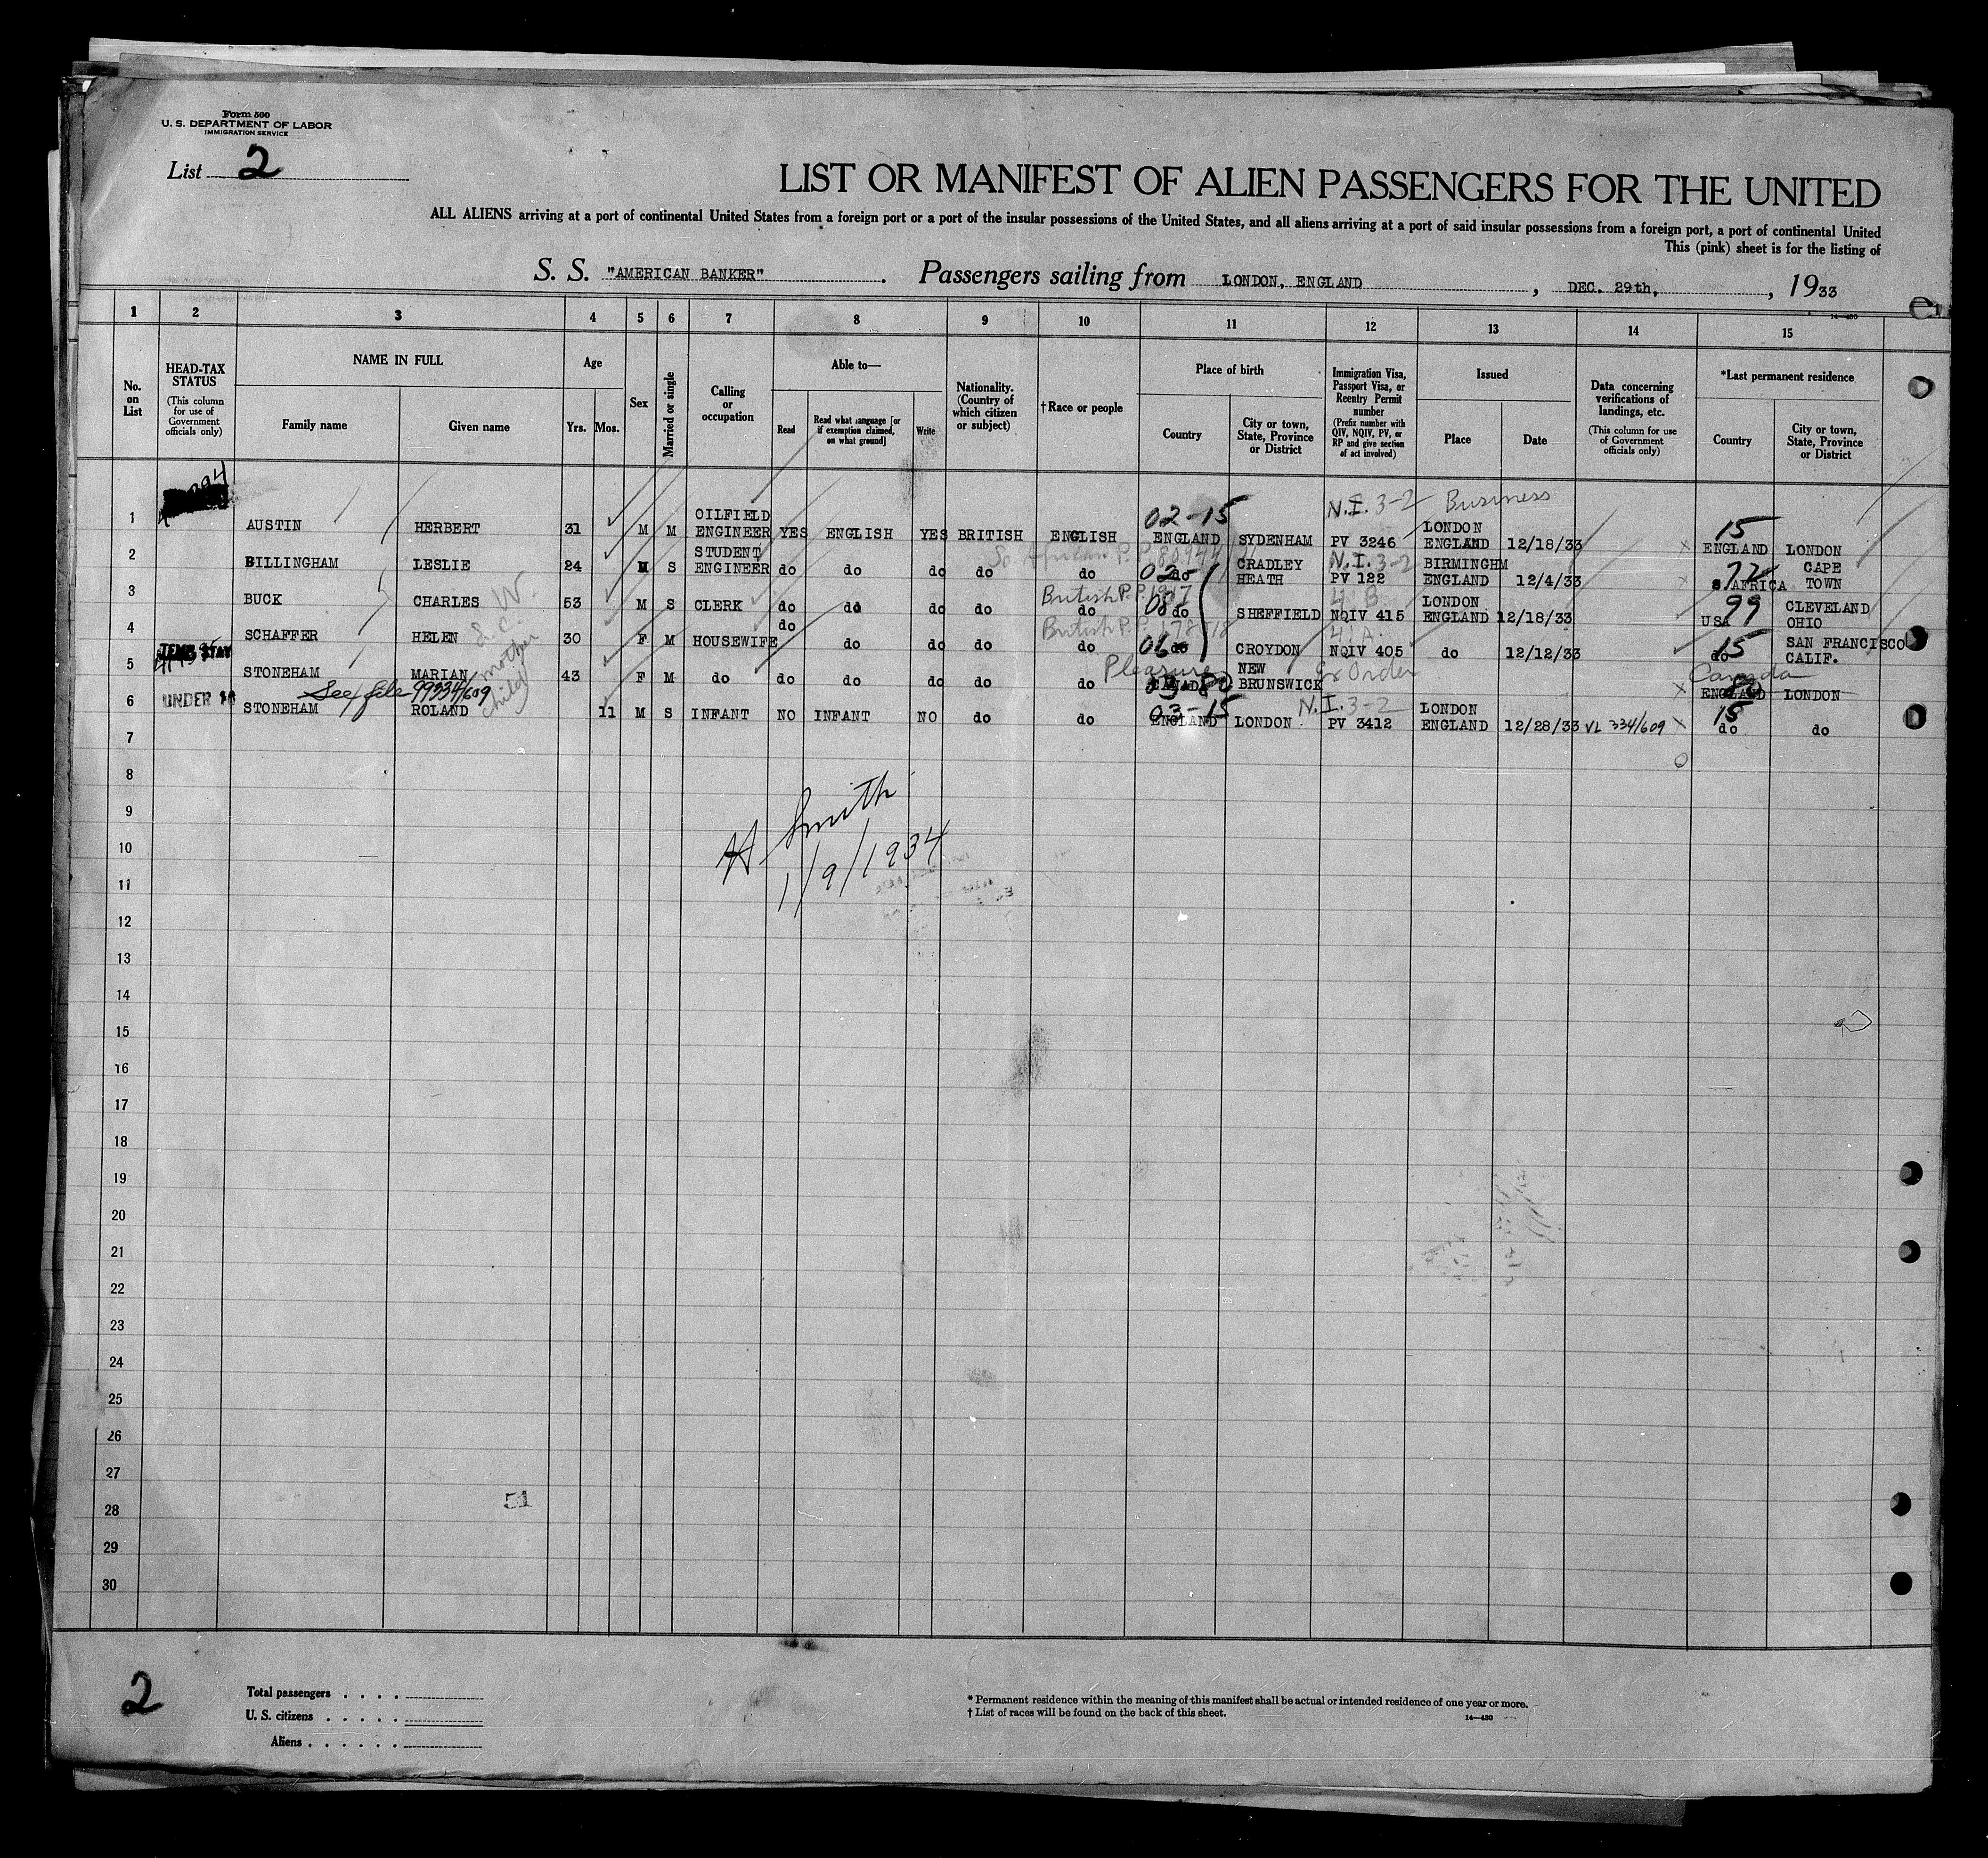 Form 500
U. S. DEPARTMENT OF LABOR
IMMIGRATION SERVICE
List 2
LIST OR MANIFEST OF ALIEN PASSENGERS FOR THE UNITED
ALL ALIENS arriving at a port of continental United States from a foreign port or a port of the insular possessions of the United States, and all aliens arriving at a port of said insular possessions from a foreign port, a port of continental United
This (pink) sheet is for the listing of
S. S. "AMERICAN BANKER". Passengers sailing from LONDON, ENGLAND, DEC. 29th, , 1933
14—430
1 2 3 4 5 6 7 8 9 10 11 12 13 14 15
No. on List
HEAD-TAX STATUS (This column for use of Government officials only)
NAME IN FULL
Family name Given name
Age
Yrs. Mos.
Sex
Married or single
Calling or occupation
Able to—
Read Read what language [or if exemption claimed, on what ground] Write
Nationality. (Country of which citizen or subject)
†Race or people
Place of birth
Country City or town, State, Province or District
Immigration Visa, Passport Visa, or Reentry Permit number (Prefix number with QIV, NQIV, PV, or RP and give section of act involved)
Issued
Place Date
Data concerning verifications of landings, etc. (This column for use of Government officials only)
*Last permanent residence
Country City or town, State, Province or District
02-15 N.I. 3-2 Business 15
1 AUSTIN HERBERT 31 M M OILFIELD ENGINEER YES ENGLISH YES BRITISH ENGLISH ENGLAND SYDENHAM PV 3246 LONDON ENGLAND 12/18/33 ENGLAND LONDON
So African P.P. N.I. 3-2
2 BILLINGHAM LESLIE 24 M S STUDENT ENGINEER do do do do do do CRADLEY HEATH PV 122 BIRMINGHM ENGLAND 12/4/33 S.AFRICA CAPE TOWN
British P.P. 4 B 99
3 BUCK CHARLES 53 M S CLERK do do do do do do SHEFFIELD NQIV 415 LONDON ENGLAND 12/18/33 USA CLEVELAND OHIO
British P.P. 4 A 15
4 SCHAFFER HELEN 30 F M HOUSEWIFE do do do do do do CROYDON NQIV 405 do 12/12/33 do SAN FRANCISCO CALIF.
TEMP. STAY Pleasure Ex Order Canada
5 STONEHAM MARIAN 43 F M do do do do do do CANADA NEW BRUNSWICK ENGLAND LONDON
mother
child
See file 99334/609
UNDER 16 03-15 N.I. 3-2 15
6 STONEHAM ROLAND 11 M S INFANT NO INFANT NO do do ENGLAND LONDON PV 3412 LONDON ENGLAND 12/28/33 VL 334/609 do do
7
8
9
10
11
12
13
14
15
16
17
18
19
20
21
22
23
24
25
26
27
28
29
30
H Smith
1/9/1934
51
2
Total passengers . . . .
U. S. citizens . . . . .
Aliens . . . . . .
* Permanent residence within the meaning of this manifest shall be actual or intended residence of one year or more.
† List of races will be found on the back of this sheet.
14—430